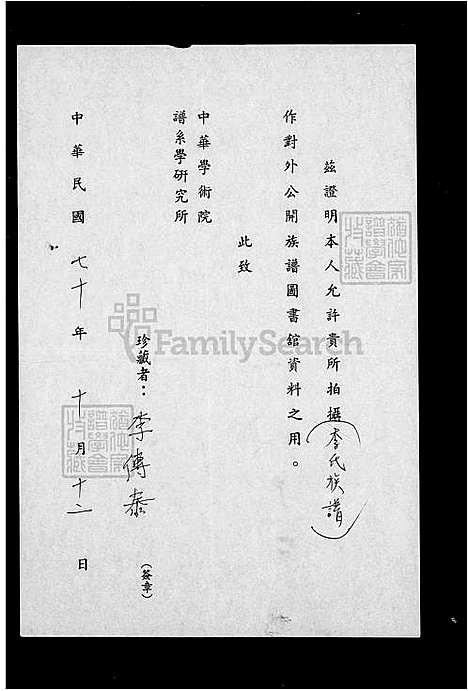 茲證明本人允許貴所拍攝(李氏族譜)
作對外公開族譜圖書館資料之用。
此致
中華學術院
譜系學研究所
珍藏者：李傳泰
(簽章)
中華民國七十年十月十二日
FamilySearch